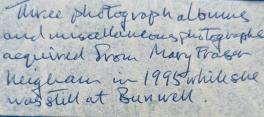 Three photograph albums
and miscellaneous photographs
acquired from Mary Fraser
Heigham in 1995 while she
was still at Bunwell.